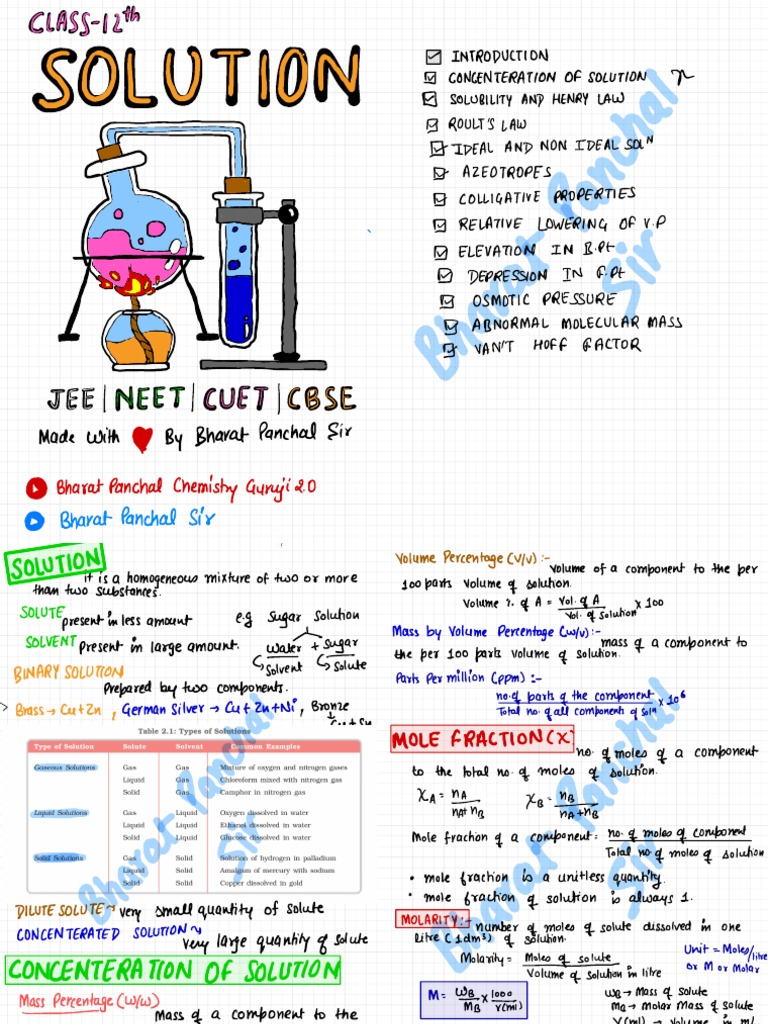 CLASS-12th
SOLUTION
JEE | NEET | CUET | CBSE
Made with ❤ By Bharat Panchal Sir
Bharat Panchal Chemistry Guruji 2.0
Bharat Panchal Sir
INTRODUCTION
CONCENTERATION OF SOLUTION
SOLUBILITY AND HENRY LAW
ROULT'S LAW
IDEAL AND NON IDEAL SOLN
AZEOTROPES
COLLIGATIVE PROPERTIES
RELATIVE LOWERING OF V.P
ELEVATION IN B.Pt
DEPRESSION IN F.Pt
OSMOTIC PRESSURE
ABNORMAL MOLECULAR MASS
VAN'T HOFF FACTOR
Bharat Panchal
Sir
SOLUTION
it is a homogeneous mixture of two or more
than two substances.
SOLUTE present in less amount
SOLVENT present in large amount.
e.g Sugar Solution
Water + Sugar
Solvent Solute
BINARY SOLUTION
Prepared by two components.
Brass → Cu+Zn, German Silver → Cu+Zn+Ni, Bronze
↓
Cu+Sn
Table 2.1: Types of Solutions
Type of Solution Solute Solvent Common Examples
Gaseous Solutions Gas Gas Mixture of oxygen and nitrogen gases
Liquid Gas Chloroform mixed with nitrogen gas
Solid Gas Camphor in nitrogen gas
Liquid Solutions Gas Liquid Oxygen dissolved in water
Liquid Liquid Ethanol dissolved in water
Solid Liquid Glucose dissolved in water
Solid Solutions Gas Solid Solution of hydrogen in palladium
Liquid Solid Amalgam of mercury with sodium
Solid Solid Copper dissolved in gold
Bharat Panchal
Sir
DILUTE SOLUTE ~ very small quantity of solute
CONCENTERATED SOLUTION ~
very large quantity of solute
CONCENTERATION OF SOLUTION
Mass Percentage (W/w)
Mass of a component to the
Volume Percentage (V/v) :-
volume of a component to the per
100 parts volume of solution.
Volume %. of A = Vol. of A / Vol. of solution × 100
Mass by Volume Percentage (w/v) :-
mass of a component to
the per 100 parts volume of solution.
Parts Per million (ppm) :-
no. of parts of the component / Total no. of all components of soln × 10⁶
MOLE FRACTION (X)
no. of moles of a component
to the total no. of moles of solution.
χA = nA / nA+nB χB = nB / nA+nB
Mole fraction of a component = no. of moles of component / Total no. of moles of solution
• mole fraction is a unitless quantity.
• mole fraction of solution is always 1.
MOLARITY :-
number of moles of solute dissolved in one
litre (1dm³) of solution.
Molarity = Moles of solute / Volume of solution in litre
Unit = Moles/litre
or M or Molar
M = WB / MB × 1000 / V(ml)
WB → Mass of Solute
MB → Molar Mass of Solute
V(ml) → Volume in ml
Bharat Panchal
Sir